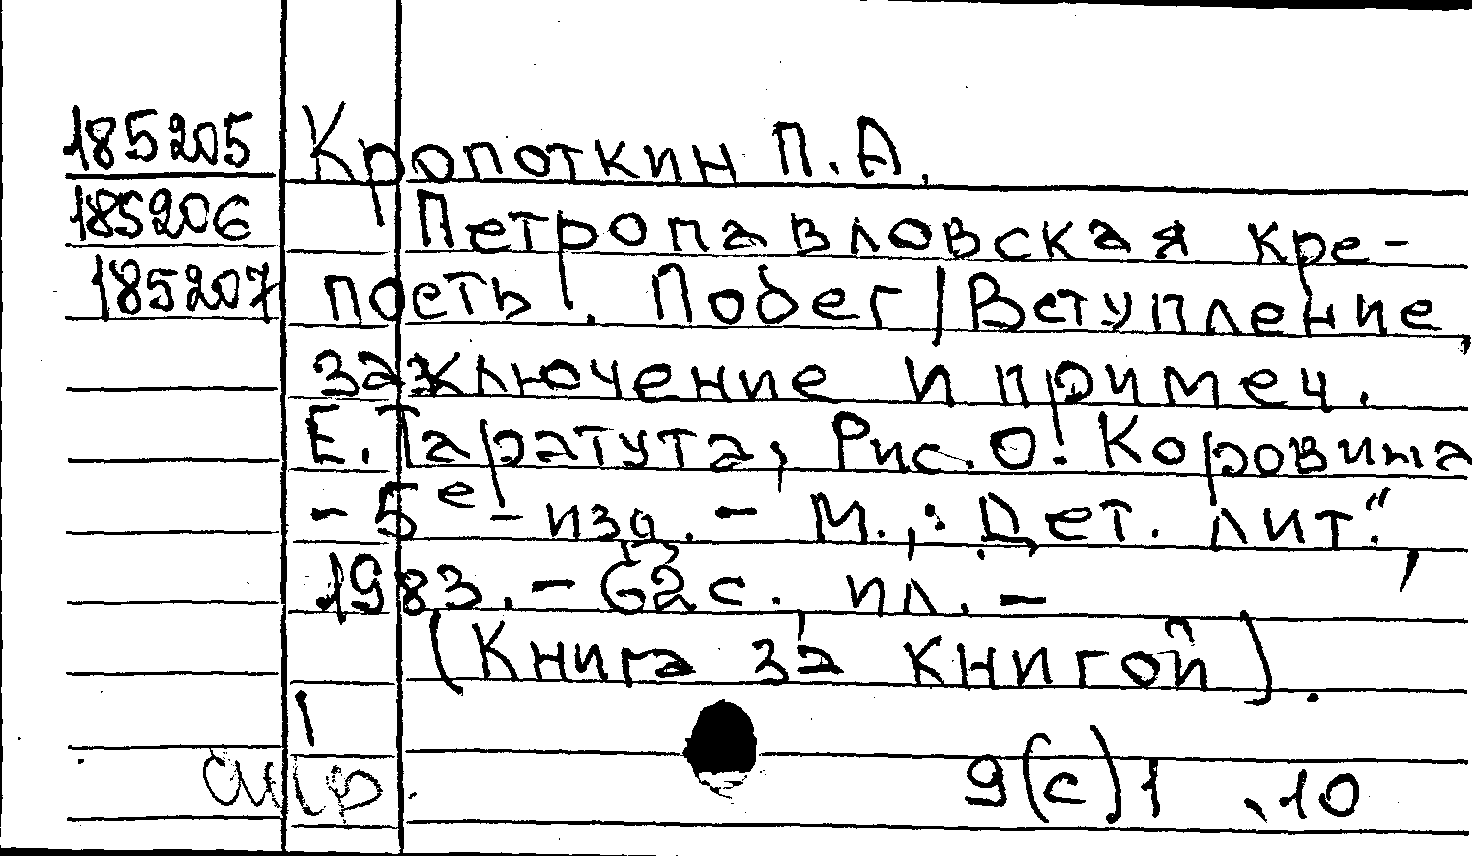 185205 Кропоткин П.А.
185206 Петропавловская кре-
185207 пость. Побег / Вступление,
заключение и примеч.
Е. Таратута; Рис. О. Коровина
- 5е - изд. - М.,: Дет. лит.",
1983. - 62 с. ил. -
(Книга за книгой).
1
9(с)1 .10